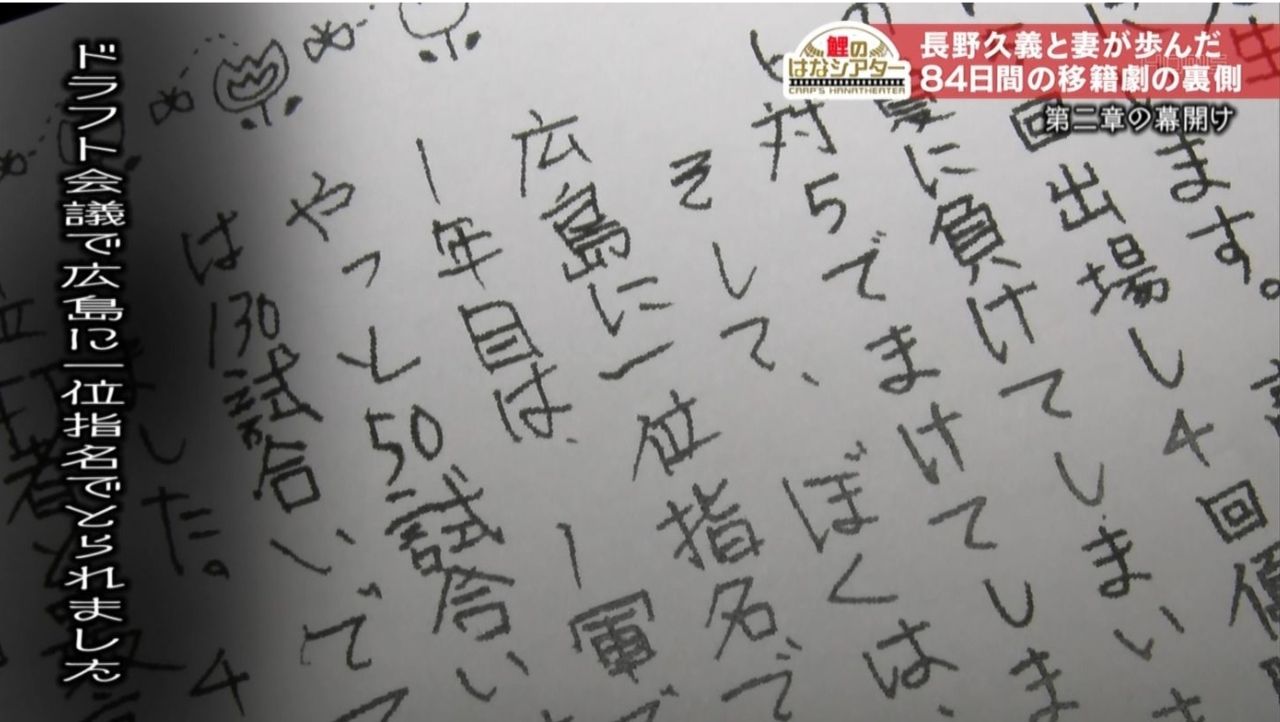 鯉の
はなシアター
CARP'S HANATHEATER
長野久義と妻が歩んだ
84日間の移籍劇の裏側
第二章の幕開け
ます。
回出場し4回優
に負けてしまい
対5でまけてしま
そして、ぼくは、
広島に一位指名で
1年目は、一軍で
やっと50試合い
は130試合いでて
した。4
ドラフト会議で広島に一位指名でとられました